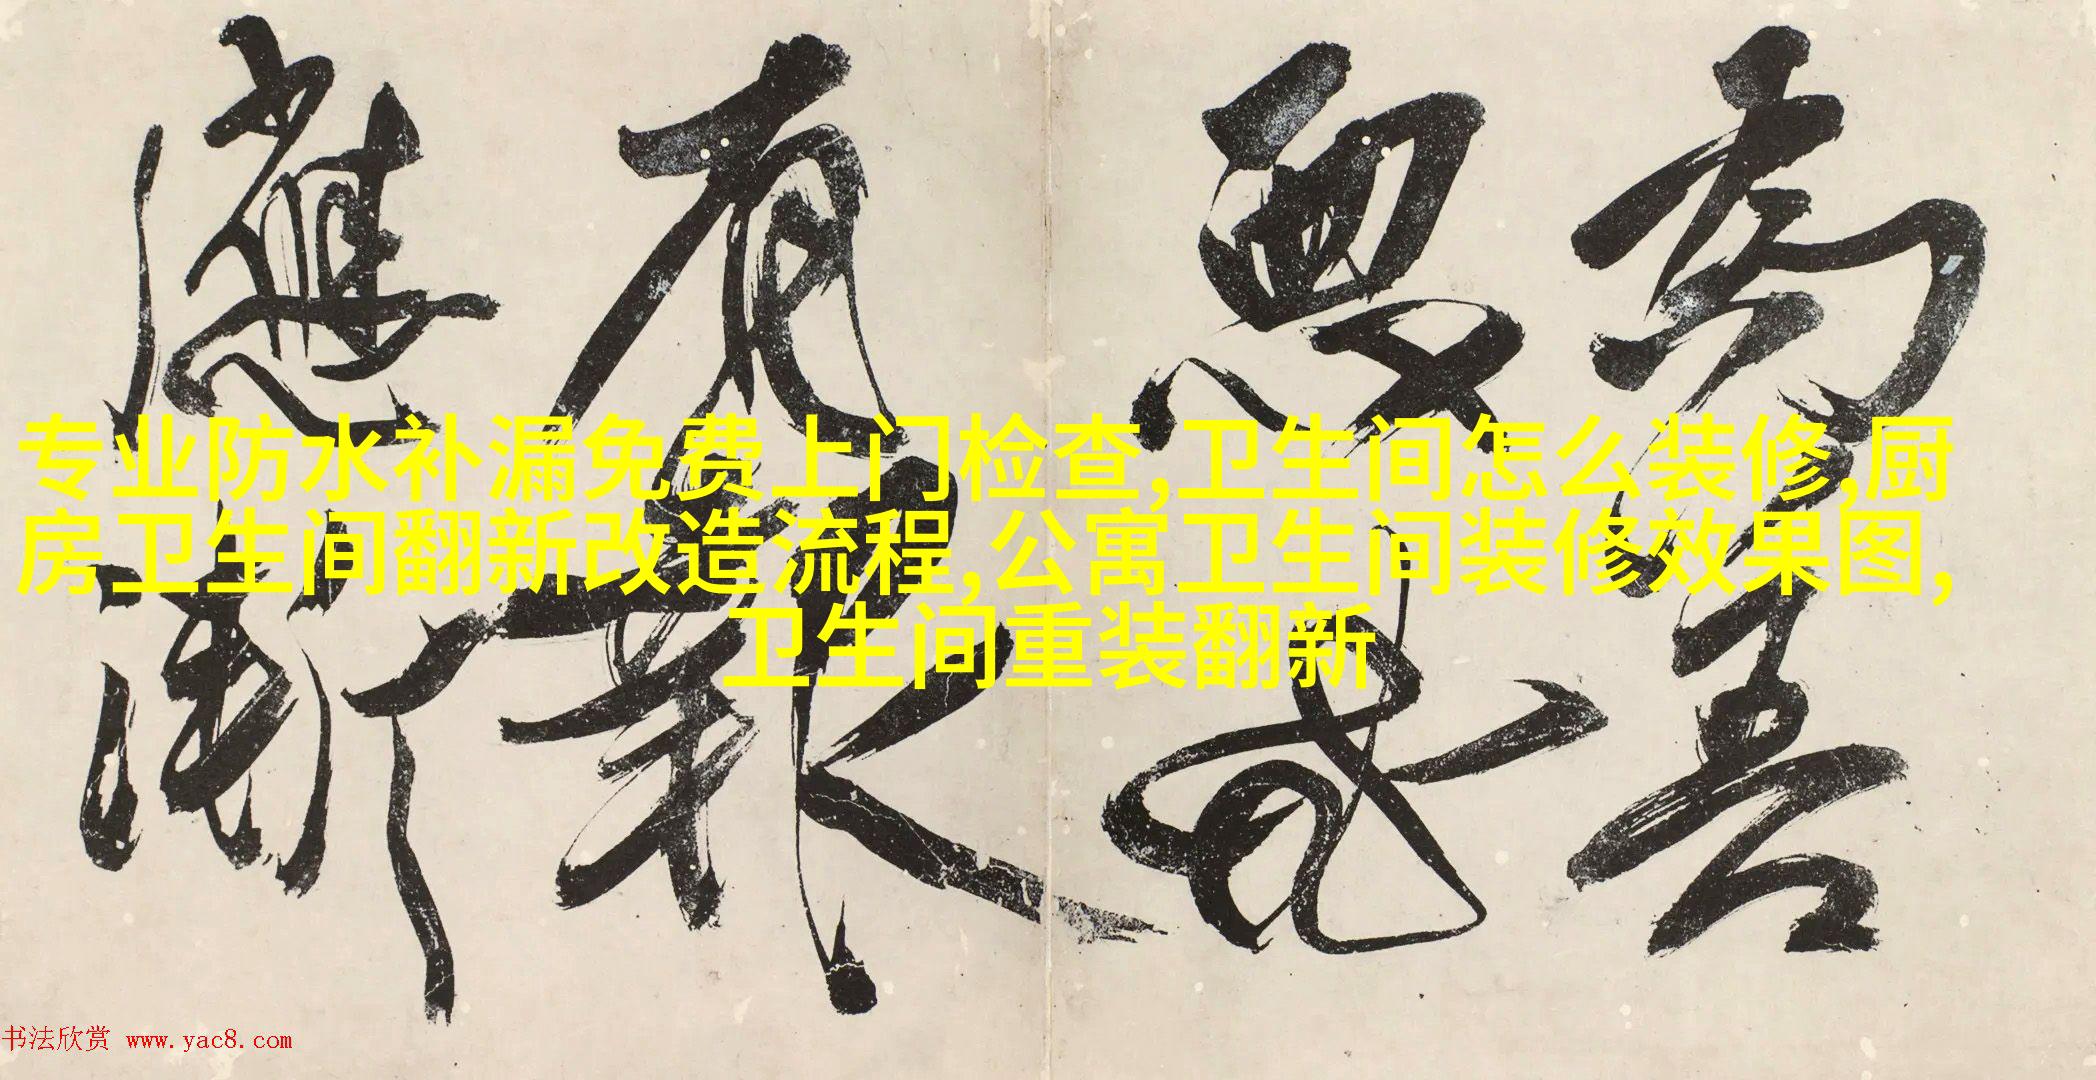 為善
惡
有報
應漸
专业防水补漏免费上门检查,卫生间怎么装修,厨
房卫生间翻新改造流程,公寓卫生间装修效果图,
卫生间重装翻新
书法欣赏 www.yac8.com